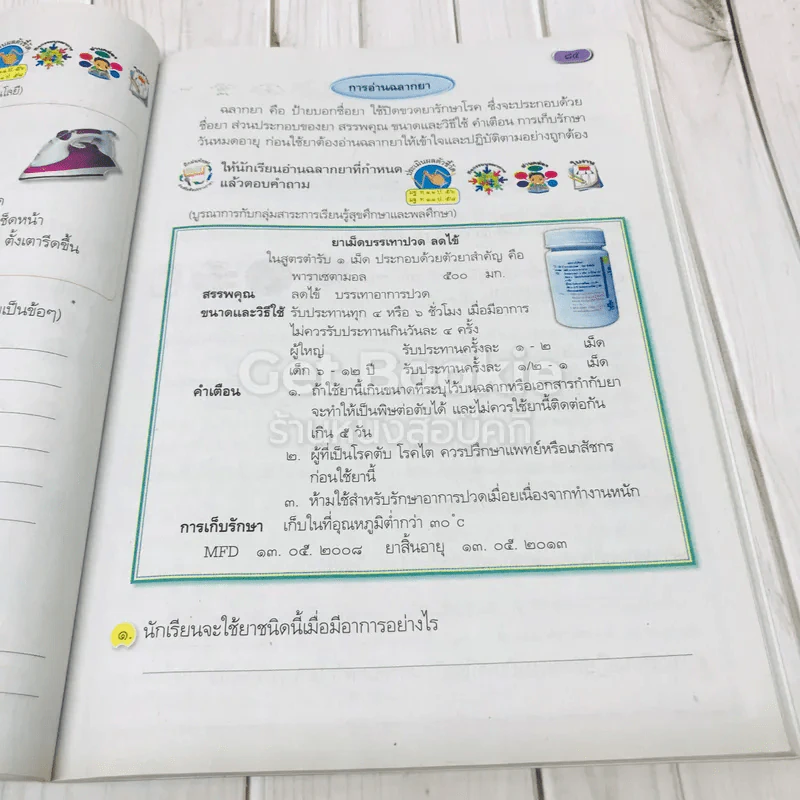 ๘๕
การอ่านฉลากยา
ฉลากยา คือ ป้ายบอกชื่อยา ใช้ปิดขวดยารักษาโรค ซึ่งจะประกอบด้วย
ชื่อยา ส่วนประกอบของยา สรรพคุณ ขนาดและวิธีใช้ คำเตือน การเก็บรักษา
วันหมดอายุ ก่อนใช้ยาต้องอ่านฉลากยาให้เข้าใจและปฏิบัติตามอย่างถูกต้อง
ให้นักเรียนอ่านฉลากยาที่กำหนด
แล้วตอบคำถาม
(บูรณาการกับกลุ่มสาระการเรียนรู้สุขศึกษาและพลศึกษา)
ยาเม็ดบรรเทาปวด ลดไข้
ในสูตรตำรับ ๑ เม็ด ประกอบด้วยตัวยาสำคัญ คือ
พาราเซตามอล ๕๐๐ มก.
สรรพคุณ ลดไข้ บรรเทาอาการปวด
ขนาดและวิธีใช้ รับประทานทุก ๔ หรือ ๖ ชั่วโมง เมื่อมีอาการ
ไม่ควรรับประทานเกินวันละ ๔ ครั้ง
ผู้ใหญ่ รับประทานครั้งละ ๑ - ๒ เม็ด
เด็ก ๖ - ๑๒ ปี รับประทานครั้งละ ๑/๒ - ๑ เม็ด
คำเตือน ๑. ถ้าใช้ยานี้เกินขนาดที่ระบุไว้บนฉลากหรือเอกสารกำกับยา
จะทำให้เป็นพิษต่อตับได้ และไม่ควรใช้ยานี้ติดต่อกัน
เกิน ๕ วัน
๒. ผู้ที่เป็นโรคตับ โรคไต ควรปรึกษาแพทย์หรือเภสัชกร
ก่อนใช้ยานี้
๓. ห้ามใช้สำหรับรักษาอาการปวดเมื่อยเนื่องจากทำงานหนัก
การเก็บรักษา เก็บในที่อุณหภูมิต่ำกว่า ๓๐°c
MFD ๑๓. ๐๕. ๒๐๐๘ ยาสิ้นอายุ ๑๓. ๐๕. ๒๐๑๓
๑. นักเรียนจะใช้ยาชนิดนี้เมื่อมีอาการอย่างไร
ตั้งเตารีดขึ้น